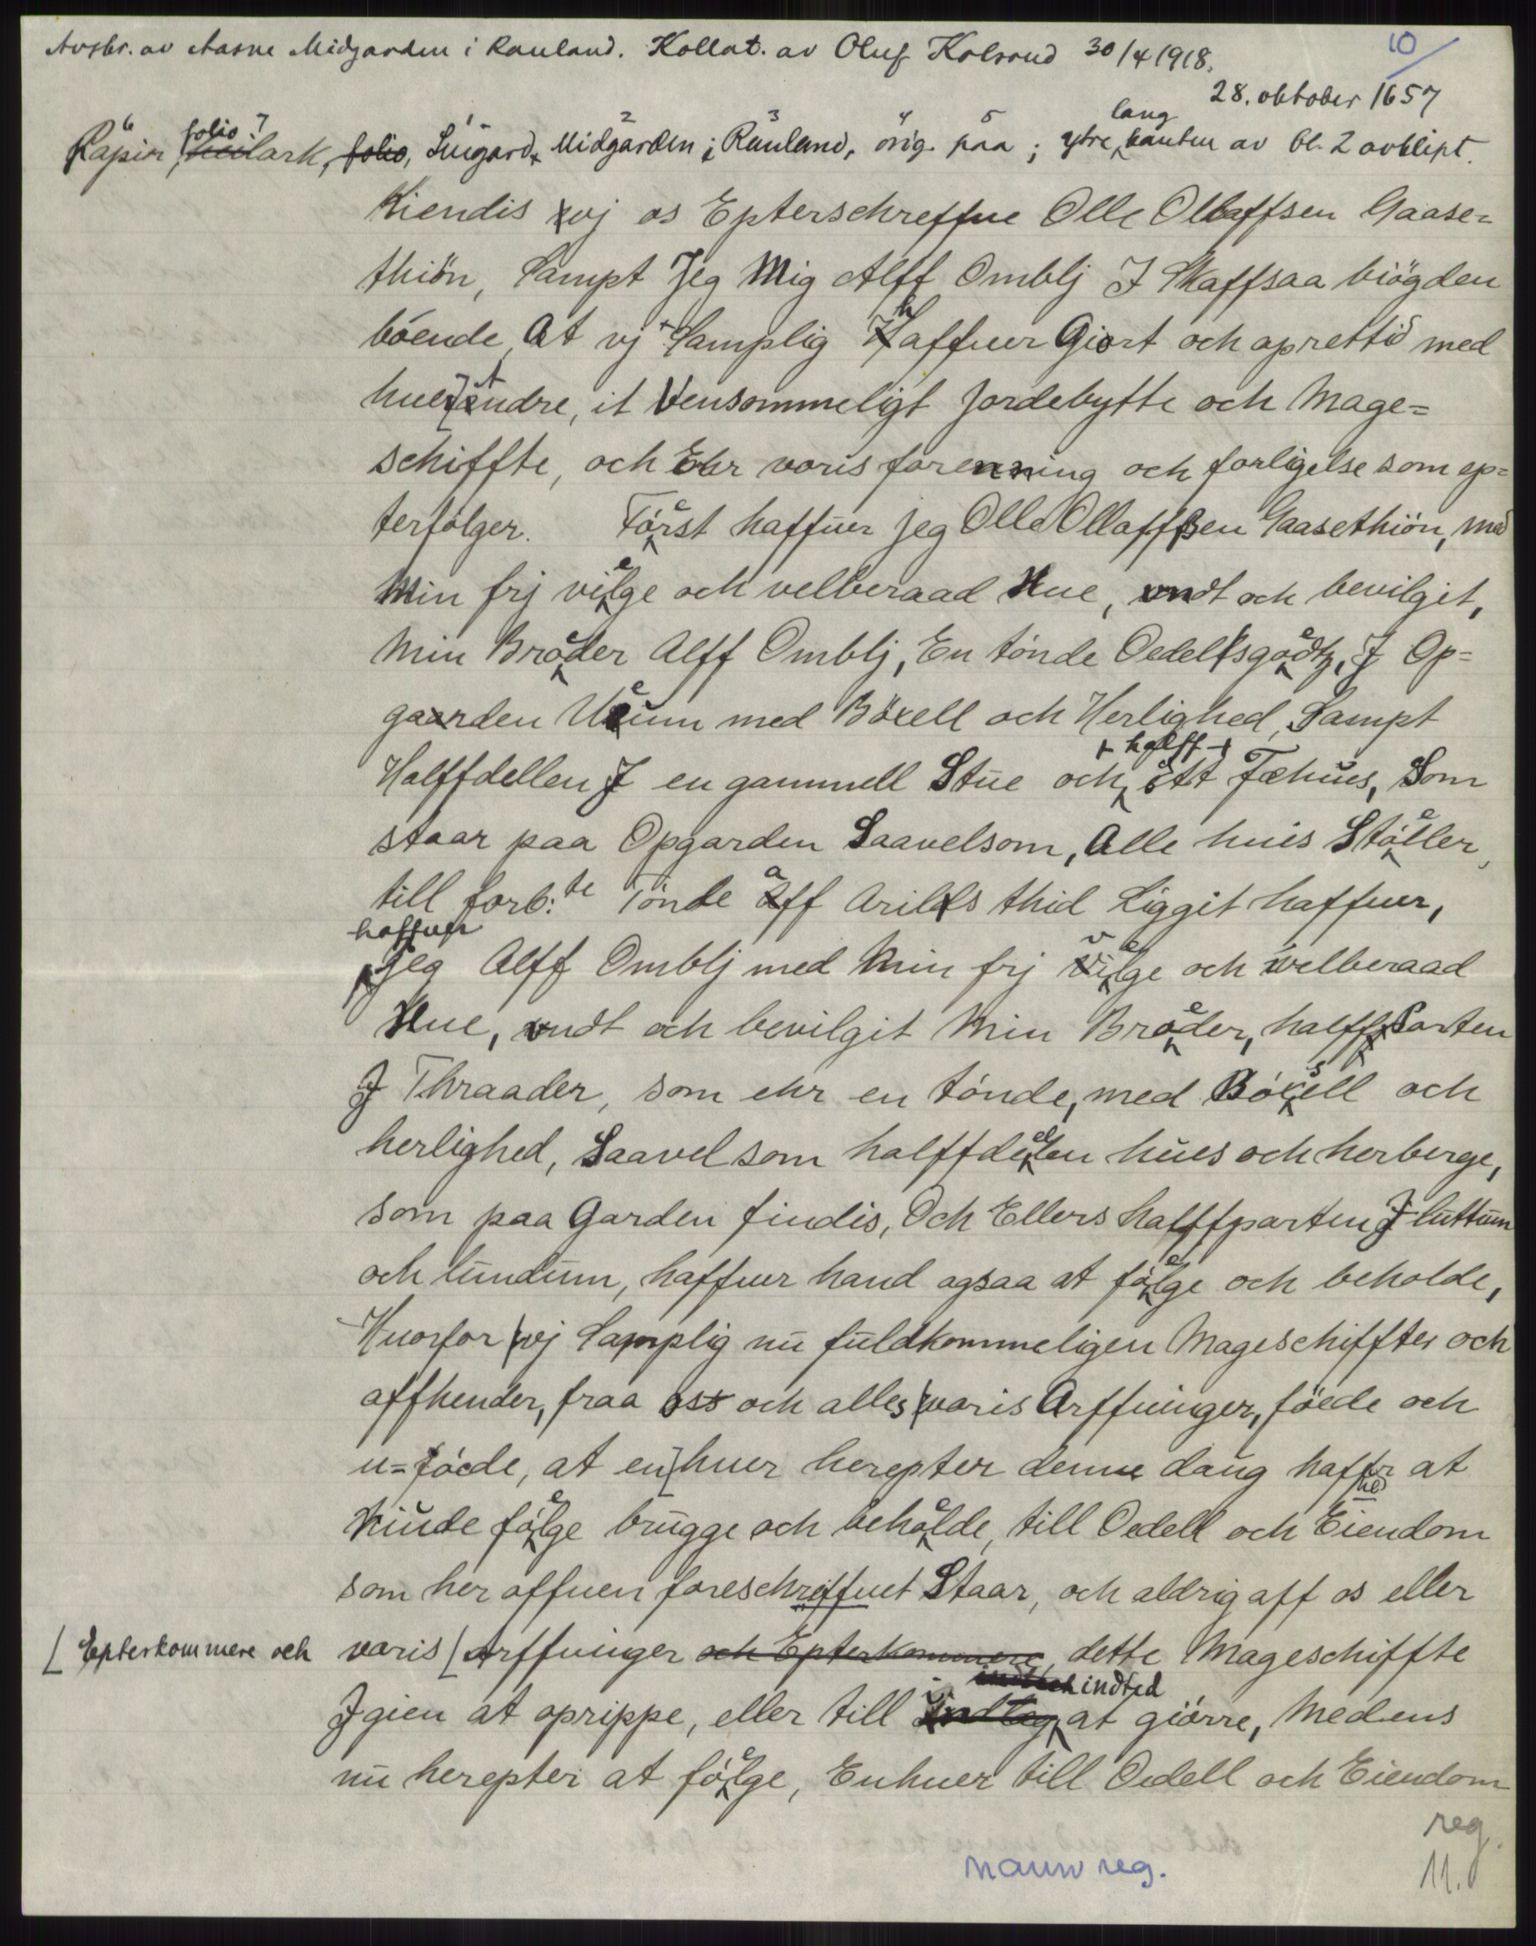 Avskr. av Aasne Midgarden i Rauland. Kollat. av Oluf Kolsrud 30/4 1918.
10
28. oktober 1657
Papir, folio ark, Luigard, Midgarden i Rauland, orig. paa ; ytre lang kanten av bl. 2 avklipt.
Kiendis vj os Epterschreffne Olle Ollaffsen Gaase=
thiön, Sampt Jeg Mig Alff Omblj I Skaffsaa biögden
bóende, At vj Samplig haffuer Giort och oprettid med
huer andre, it Vensommeligt Jordebytte och Mage=
schiffte, och Ehr voris forenning och forligelse som ep=
terfólger. Fóerst haffuer jeg Olle Ollaffsen Gaasethión, med
Min frj vielge och velberaad Hue, undt och bevilgit,
Min Broeder Alff Omblj, En tónde Oedelsgoedtz, J Op=
garden Ueum med Böxell och Herlighed, Sampt
Halffdellen J en gammell Stue och halff ett Fæhues, Som
staar paa Opgarden Saavelsom, Alle hues Stóeller,
till forb:te Tónde aff Arilds thid Liggit haffuer,
haffuer Jeg Alff Omblj med Min frj vielge och velberaad
Hue, undt och bevilgit Min Broeder, halff Parten
J Thraader, som ehr en tónde, med Bóxsell och
herlighed, Saavel som halffdeelen hues och herberge,
som paa Garden findis, Och Ellers halffparten J luttum
och lundum, haffuer hand ogsaa at fóelge och beholde,
Huorfor vj Samplig nu fuldkommeligen Mageschiffter och
affhender, fraa oss och alles voris Arffuinger, föede och
u=fóede, at en huer herepter denne daug haffr at
kiude fóelge brugge och behoelde, till Oedell och Eiendom
som her offuen foreschreffuet Staar, och aldrig aff os eller
[ Epterkommere och voris [ Arffuinger och Epterkommere dette Mageschiffte
J gien at oprippe, eller till indted at giórre, Medens
nu herepter at fóelge, Enhuer till Oedell och Eiendom
reg.
navnreg.
11.